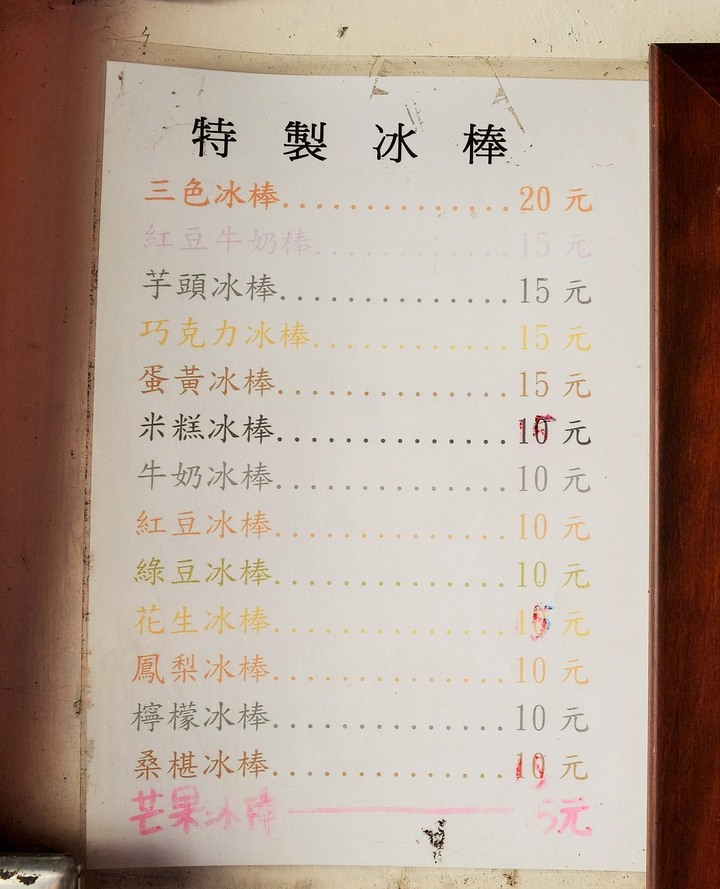 特製冰棒
三色冰棒..............20元
紅豆牛奶棒............15元
芋頭冰棒..............15元
巧克力冰棒............15元
蛋黃冰棒..............15元
米糕冰棒..............15元
牛奶冰棒..............10元
紅豆冰棒..............10元
綠豆冰棒..............10元
花生冰棒..............15元
鳳梨冰棒..............10元
檸檬冰棒..............10元
桑椹冰棒..............元
芒果冰棒——15元